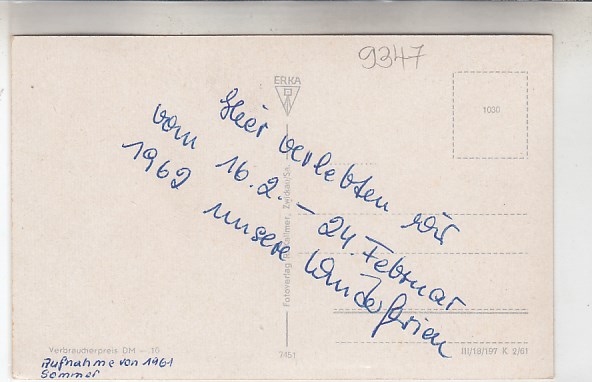 9347
ERKA
1030
Hier verlebten wir
vom 16.2. – 24. Februar
1962 unsere Winterferien
Fotoverlag R. Kallmer, Zwickau/Sa.
Verbraucherpreis DM –.10
7451
III/18/197 K 2/61
Aufnahme von 1961
Sommer